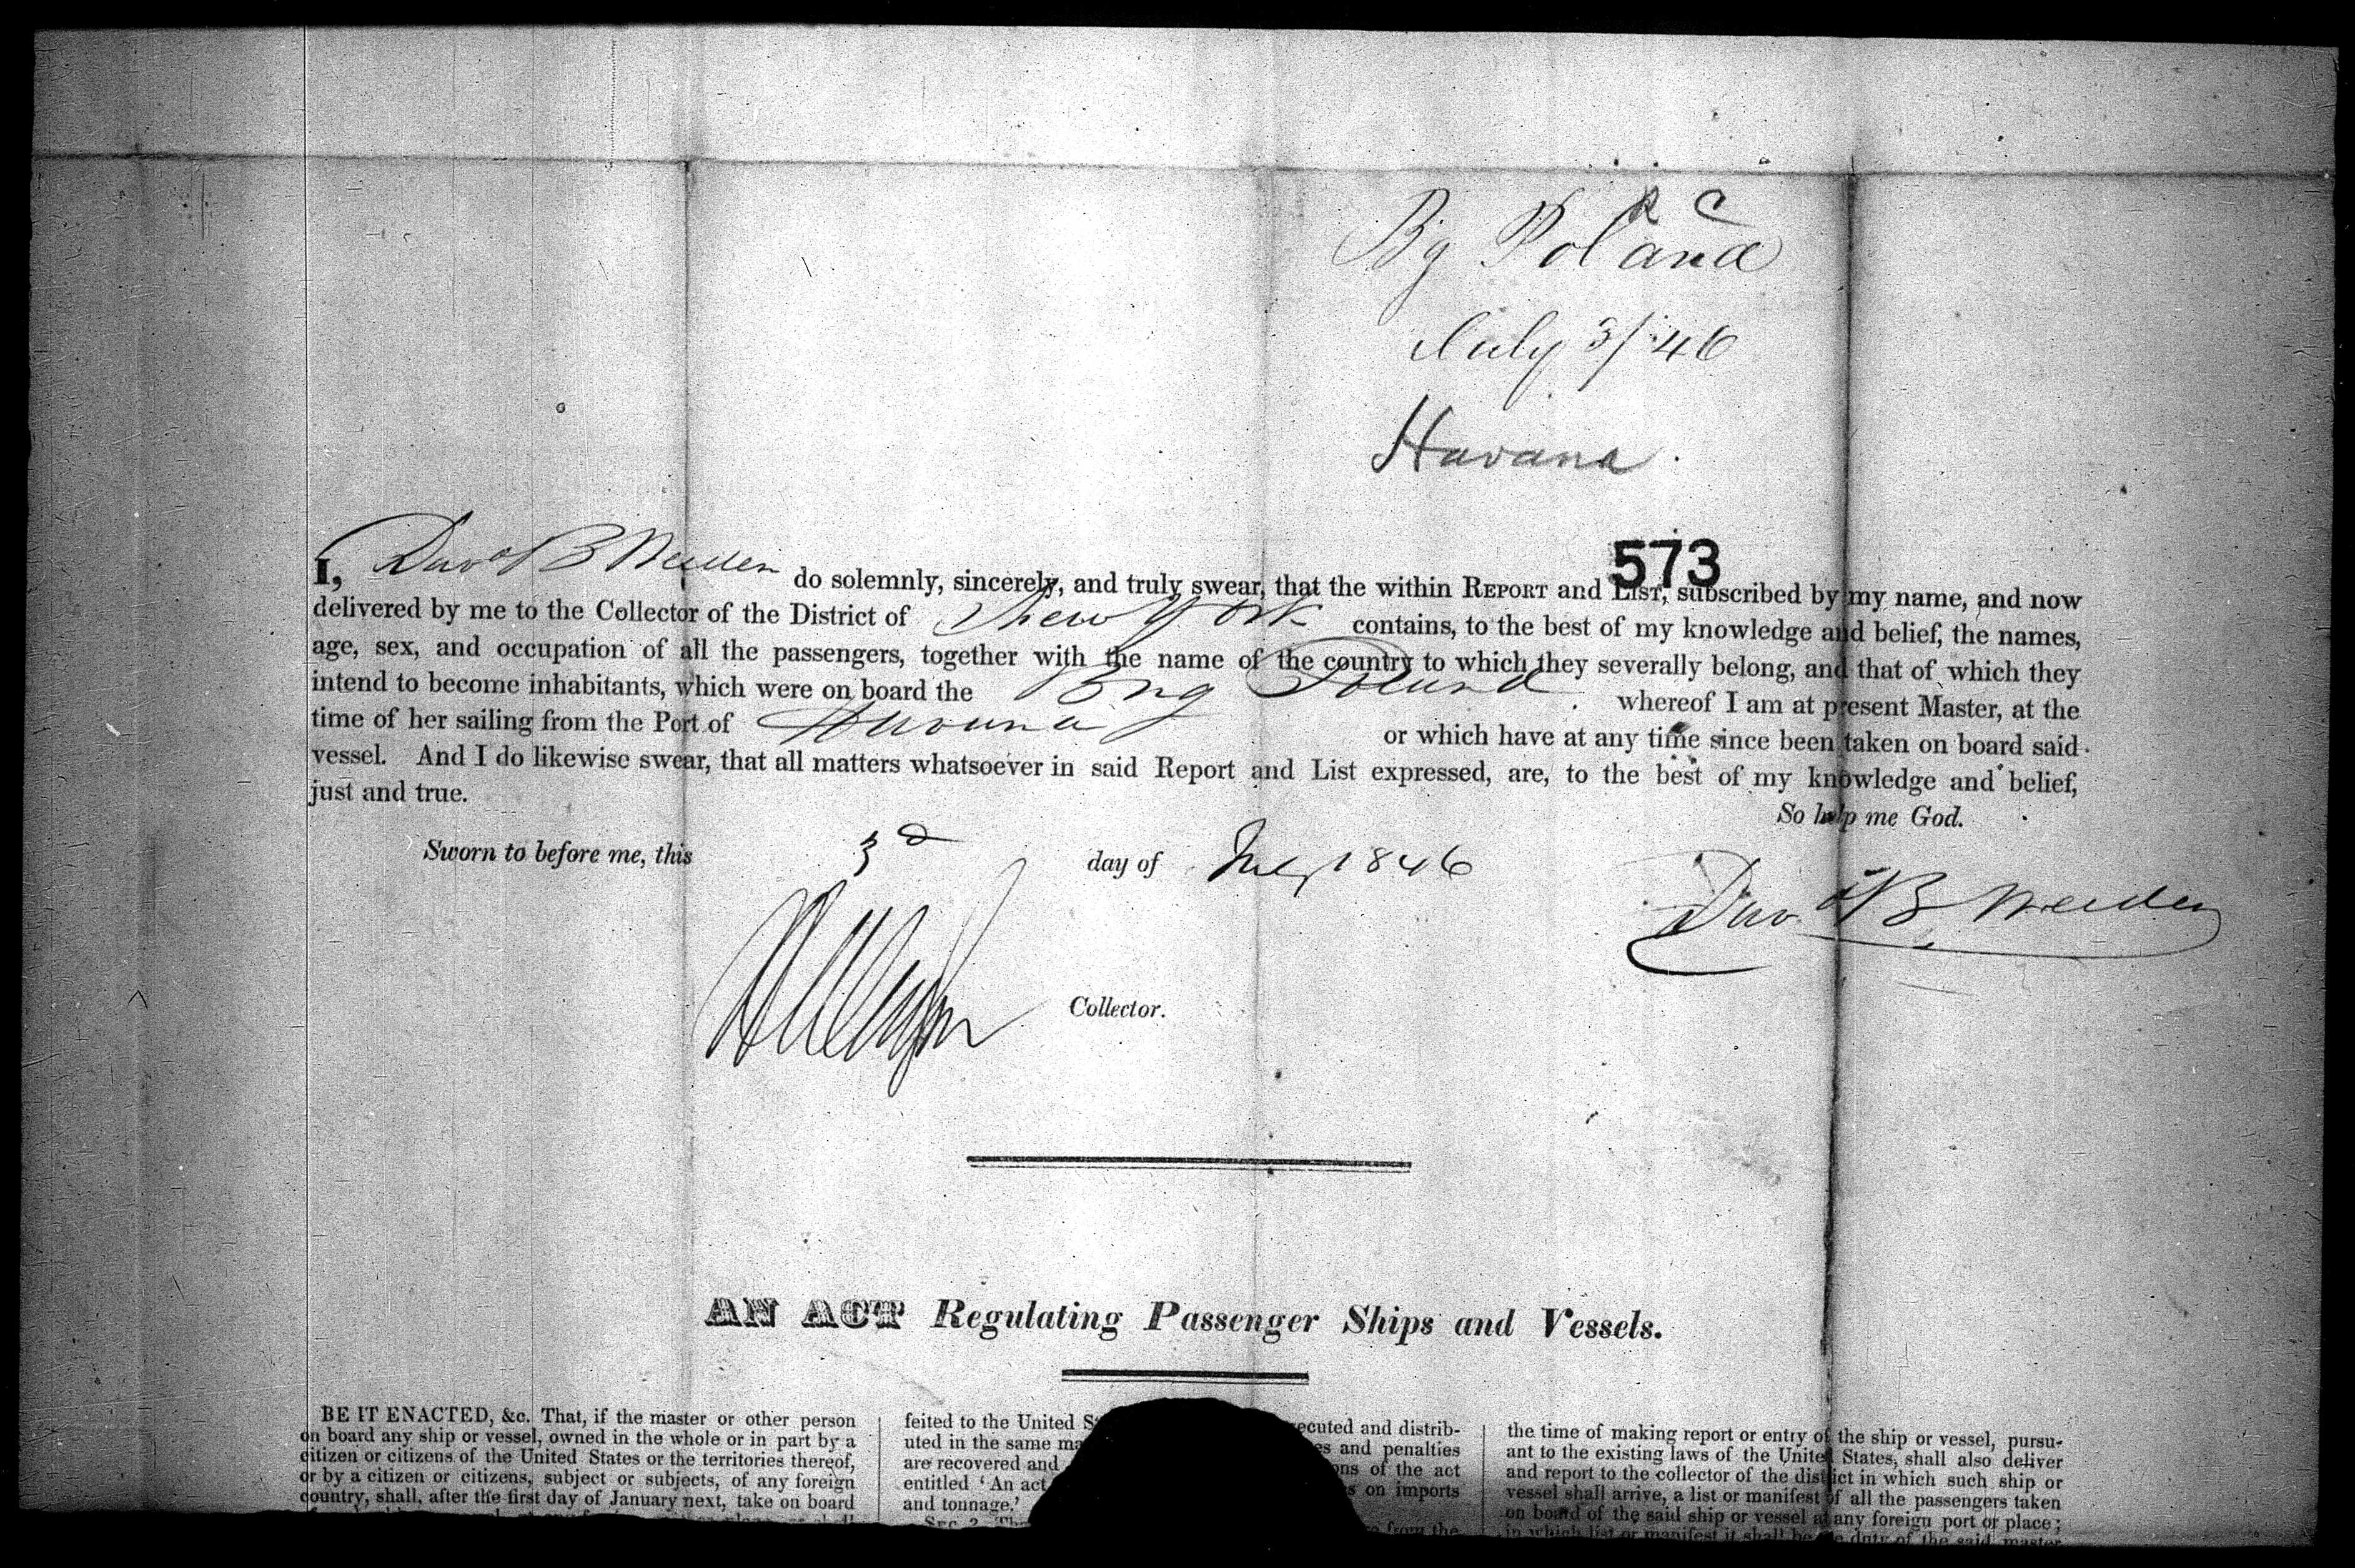 R C
Bg Poland
July 3/46
Havana
573
I, Davd B Weeden do solemnly, sincerely, and truly swear, that the within REPORT and LIST, subscribed by my name, and now
delivered by me to the Collector of the District of New York contains, to the best of my knowledge and belief, the names,
age, sex, and occupation of all the passengers, together with the name of the country to which they severally belong, and that of which they
intend to become inhabitants, which were on board the Brig Poland whereof I am at present Master, at the
time of her sailing from the Port of Havana or which have at any time since been taken on board said
vessel. And I do likewise swear, that all matters whatsoever in said Report and List expressed, are, to the best of my knowledge and belief,
just and true.
So help me God.
Sworn to before me, this 3d day of July 1846
Davd B Weeden
Collector.
AN ACT Regulating Passenger Ships and Vessels.
BE IT ENACTED, &c. That, if the master or other person
on board any ship or vessel, owned in the whole or in part by a
citizen or citizens of the United States or the territories thereof,
or by a citizen or citizens, subject or subjects, of any foreign
country, shall, after the first day of January next, take on board
feited to the United
uted in the same
are recovered and
entitled 'An act
and tonnage.'
SEC. 2.
ecuted and distrib-
es and penalties
ons of the act
s on imports
from the
the time of making report or entry of the ship or vessel, pursu-
ant to the existing laws of the United States, shall also deliver
and report to the collector of the district in which such ship or
vessel shall arrive, a list or manifest of all the passengers taken
on board of the said ship or vessel at any foreign port or place;
in which list or manifest it shall be the duty of the said master